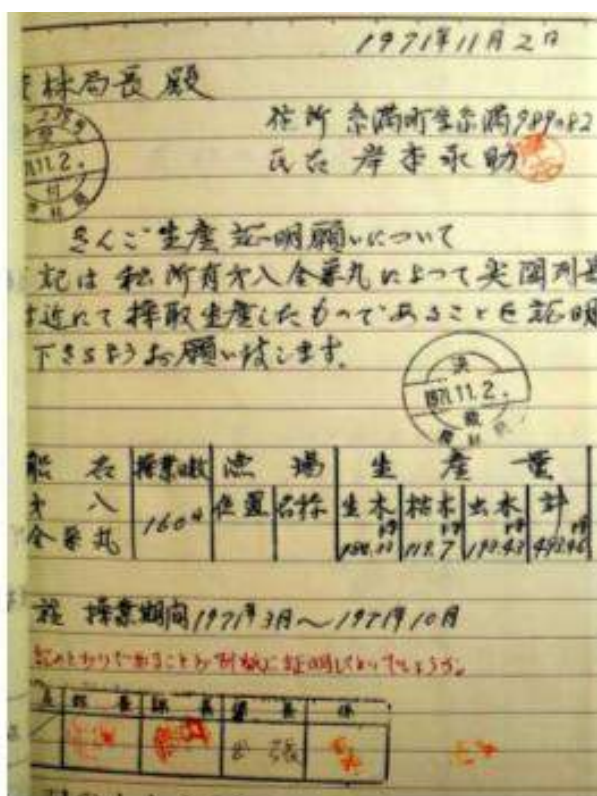 1971年11月2日
林局長殿
住所 糸満町字糸満989の82
氏名 岸本永助
11.2.
付
さんご生産証明願いについて
記は私所有才八全栄丸によって尖閣列島
近にて採取生産したものであることを証明
下さるようお願い致します。
決
1971.11.2.
裁
船名 操業日数 漁場 生産量
才八 160日 位置 名称 生木 枯木 出木 計
全栄丸 119.7
操業期間1971年3月～1971年10月
記のとおりであることを別紙に証明してよいでしょうか。
部長 課長 係長 係
出張